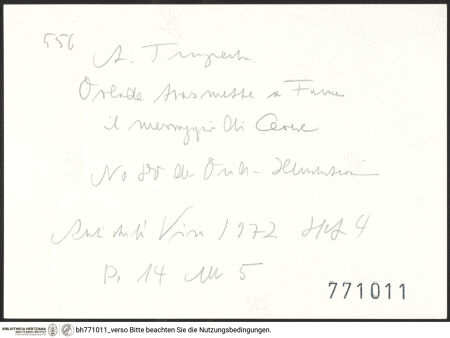 556
A. Tempesta
Oreade trasmette a Fame
il messaggio di Cerere
No 80 der Ovid-Illustration
Antichità Viva 1972 Heft 4
p. 14 Abb 5
771011
BIBLIOTHECA HERTZIANA
bh771011_verso Bitte beachten Sie die Nutzungsbedingungen.